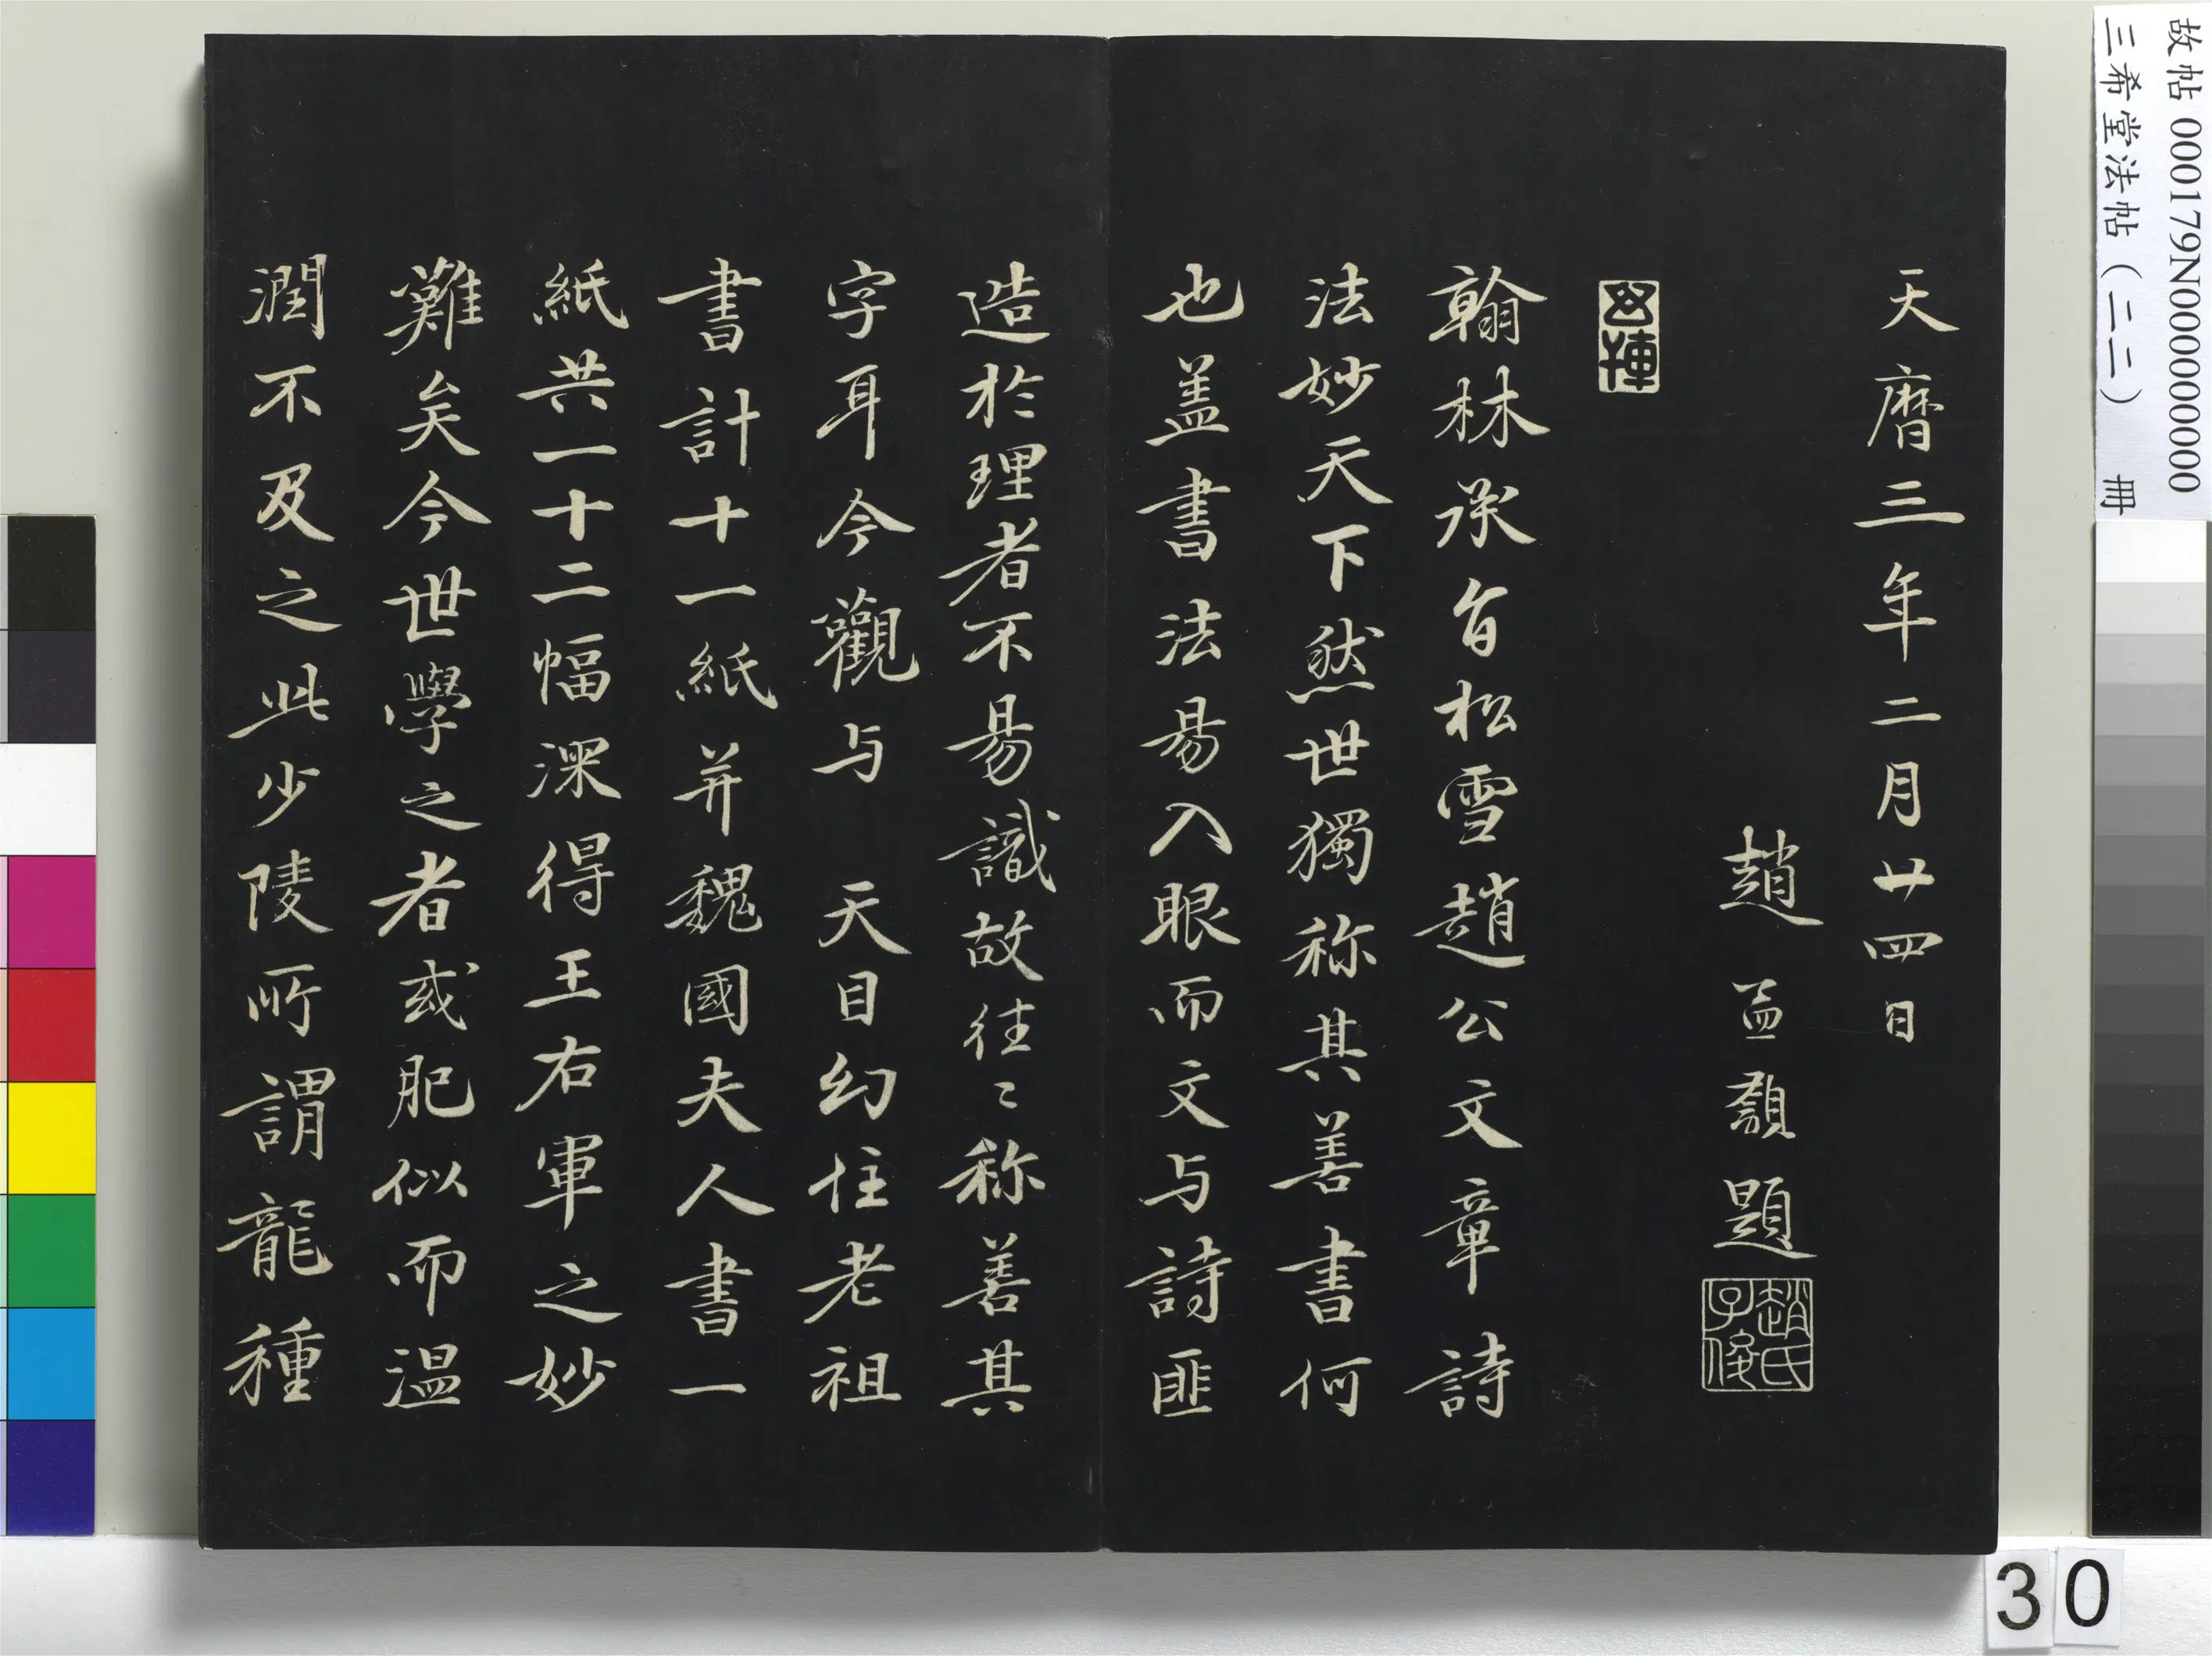 天曆三年二月廿四日
趙孟頫題
趙氏子俊
翰林承旨松雪趙公文章詩
法妙天下然世獨称其善書何
也盖書法易入眼而文与詩匪
造於理者不易識故往〻称善其
字耳今觀与 天目幻住老祖
書計十一紙并魏國夫人書一
紙共一十二幅深得王右軍之妙
難矣今世學之者或肥似而温
潤不及之此少陵所謂龍種
故帖 000179N000000000
三希堂法帖(二二) 冊
30